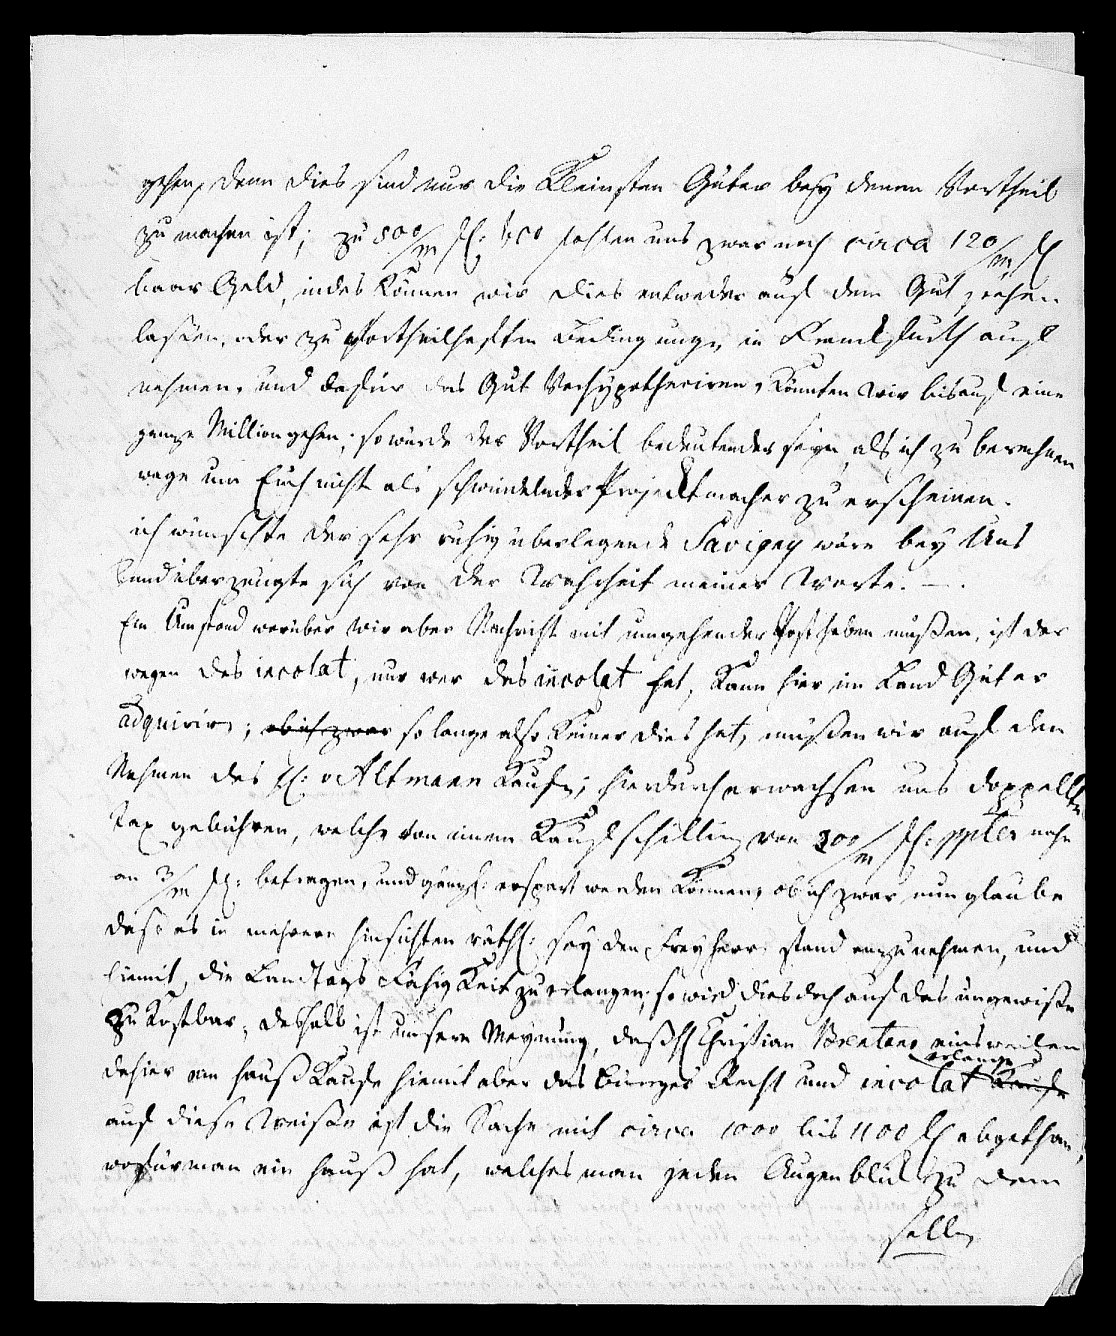 gehen, denn dies sind nur die Kleinsten Güter bey denen Vortheil
zu machen ist; zu 800/m fl: fehlen uns zwar noch circa 120/m fl
baar Geld, indes Können wir dies entweder auf dem Gut stehen
laßen, oder zu vortheilhaften Bedingungen in Frankfurth auf
nehmen, und dafür das Gut Verhypotheciren, Könnten wir bis auf eine
ganze Million gehen, so würde der Vortheil bedeutender seyn, als ich zu berechnen
wage um Euch nicht als schwindelnder Projecktmacher zu erscheinen.
ich wünschte der sehr ruhig überlegende Savigny wäre bey Uns
und überzeugte sich von der Wahrheit meiner Worte. —.
Ein Umstand worüber wir aber Nachricht mit umgehender Post haben müßen, ist der
wegen des incolat, nur wer das incolat hat, Kann hier im Land Güter
adquirirn; obich zwar so lange also Keiner dies hat, müßen wir auf den
Nahmen des H: v Altmann Kaufen, hierdurch erwachsen uns doppellte
Tax gebühren, welche von einem Kaufschilling von 300/m fl: nahe
an 3/m fl: betragen, und gänzl: erspart werden Können, obich zwar nun glaube
daß es in mehrern hinsichten räthl: sey den Freyherr stand anzunehmen, und
hiemit die Landtags FähigKeit zu erlangen, so wird dies doch auf das ungewiße
zu Kostbar, deshalb ist unsere Meynung, daß H Christian Brentano einsweilen
dahier ein Hauß Kaufe hiemit aber das Bürger Recht und incolat erlange Kaufe
auf diese Weiße ist die Sache mit circa 1000 bis 1100 fl abgethan,
wofür man ein Hauß hat, welches man jeden Augenblick zu dem
selben